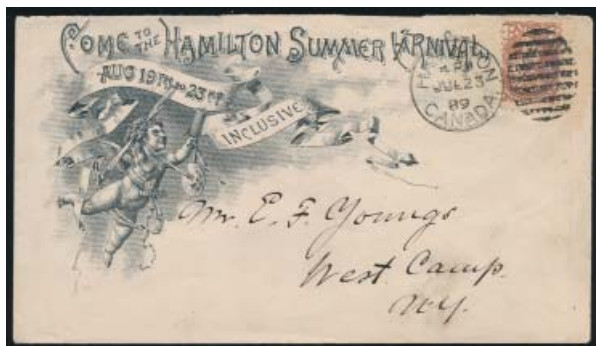 COME TO THE HAMILTON SUMMER CARNIVAL
AUG 19TH TO 23RD
INCLUSIVE
HAMILTON
JUL 23
89
CANADA
Mr. E. F. Youngs
West Camp.
N.Y.